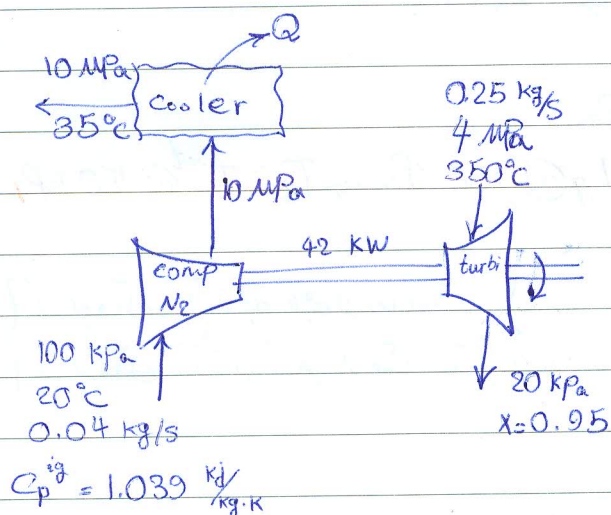 Q
10 MPa
Cooler
35°C
10 MPa
0.25 kg/s
4 MPa
350°C
42 KW
comp
N2
turbi
100 kPa
20°C
0.04 kg/s
20 kPa
X=0.95
Cp^ig = 1.039 kj/kg.K